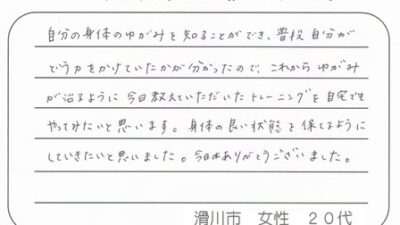 自分の身体のゆがみを知ることができ、普段自分が
どう力をかけていたかが分かったので、これからゆがみ
が治るように今日教えていただいたトレーニングを自宅でも
やってみたいと思います。身体の良い状態を保てるように
していきたいと思いました。今日はありがとうございました。
滑川市 女性 20代